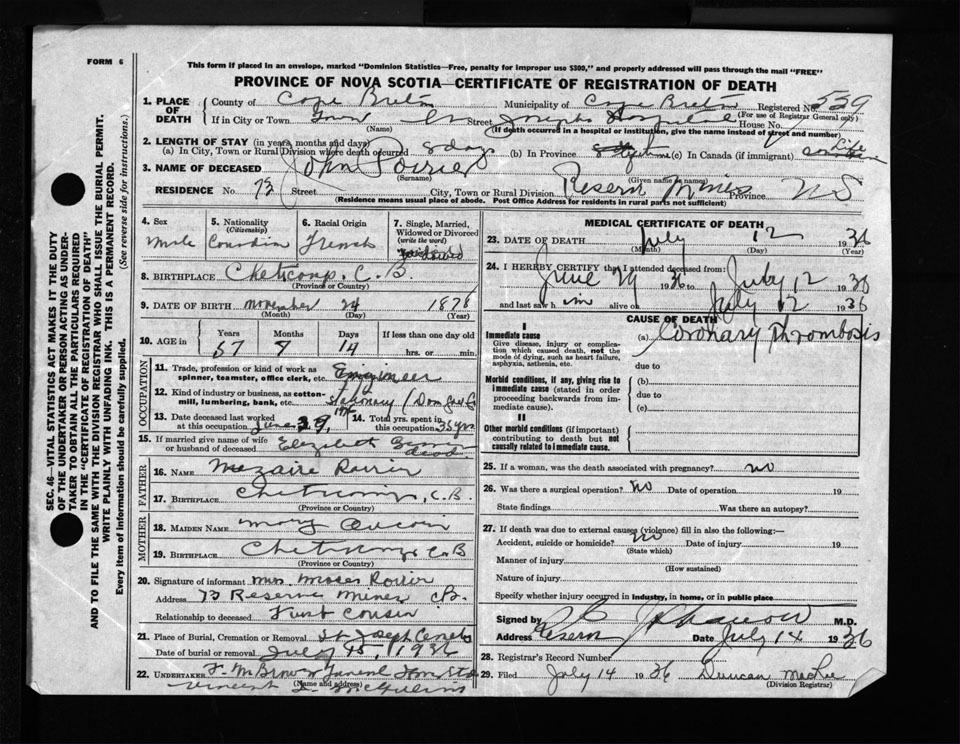 FORM 6
This form if placed in an envelope, marked "Dominion Statistics—Free, penalty for improper use $300," and properly addressed will pass through the mail "FREE"
PROVINCE OF NOVA SCOTIA—CERTIFICATE OF REGISTRATION OF DEATH
1. PLACE OF DEATH County of Cape Breton Municipality of Cape Breton Registered No. 539
(For use of Registrar General only)
If in City or Town Town Street St Josephs Hospital House No.
(Name) (If death occurred in a hospital or institution, give the name instead of street and number)
2. LENGTH OF STAY (in years, months and days)
(a) In City, Town or Rural Division where death occurred 8 days (b) In Province (c) In Canada (if immigrant) Life
3. NAME OF DECEASED John Poirier
(Surname) (Given name or names)
RESIDENCE No. 73 Street City, Town or Rural Division Reserve Mines Province NS
(Residence means usual place of abode. Post Office Address for residents in rural parts not sufficient)
4. Sex Male
5. Nationality (Citizenship) Canadian
6. Racial Origin French
7. Single, Married, Widowed or Divorced (write the word) Widowed
8. BIRTHPLACE Cheticamp. C. B.
(Province or County)
9. DATE OF BIRTH November 24 187
(Month) (Day) (Year)
10. AGE in Years Months Days If less than one day old
57 14 hrs. or min.
OCCUPATION
11. Trade, profession or kind of work as spinner, teamster, office clerk, etc. Engineer
12. Kind of industry or business, as cotton-mill, lumbering, bank, etc. Stationary (Dom
13. Date deceased last worked at this occupation June 29, 14. Total yrs. spent in this occupation 35 yrs
15. If married give name of wife or husband of deceased Elizabeth
dead
FATHER
16. NAME Mezaire Poirier
17. BIRTHPLACE Cheticamp, C.B.
(Province or County)
MOTHER
18. MAIDEN NAME Mary Aucoin
19. BIRTHPLACE Cheticamp C.B
(Province or County)
20. Signature of informant Mrs. Moses Poirier
Address 73 Reserve Mines CB.
Relationship to deceased First Cousin
21. Place of Burial, Cremation or Removal St Joseph
Date of burial or removal July 15, 1936
22. UNDERTAKER F. M Funeral
(Name and address)
Vincent
MEDICAL CERTIFICATE OF DEATH
23. DATE OF DEATH July 12 1936
(Month) (Day) (Year)
24. I HEREBY CERTIFY that I attended deceased from:
June 29 1936 to July 12 1936
and last saw him alive on July 12 1936
CAUSE OF DEATH
I
Immediate cause
Give disease, injury or complication which caused death, not the mode of dying, such as heart failure, asphyxia, asthenia, etc.
(a) Coronary Thrombosis
due to
Morbid conditions, if any, giving rise to immediate cause (stated in order proceeding backwards from immediate cause).
(b)
due to
(c)
II
Other morbid conditions (if important) contributing to death but not causally related to immediate cause.
25. If a woman, was the death associated with pregnancy? no
26. Was there a surgical operation? No Date of operation 19
State findings Was there an autopsy?
27. If death was due to external causes (violence) fill in also the following:—
Accident, suicide or homicide? no Date of injury 19
(State which)
Manner of injury
(How sustained)
Nature of injury
Specify whether injury occurred in industry, in home, or in public place
Signed by M.D.
Address Reserve Date July 14 1936
28. Registrar's Record Number
29. Filed July 14 1936 Duncan
(Division Registrar)
SEC. 46—VITAL STATISTICS ACT MAKES IT THE DUTY
OF THE UNDERTAKER OR PERSON ACTING AS UNDER-
TAKER TO OBTAIN ALL THE PARTICULARS REQUIRED
IN THE "CERTIFICATE OF REGISTRATION OF DEATH"
AND TO FILE THE SAME WITH THE DIVISION REGISTRAR WHO SHALL ISSUE THE BURIAL PERMIT.
WRITE PLAINLY WITH UNFADING INK. THIS IS A PERMANENT RECORD.
Every item of information should be carefully supplied. (See reverse side for instructions.)